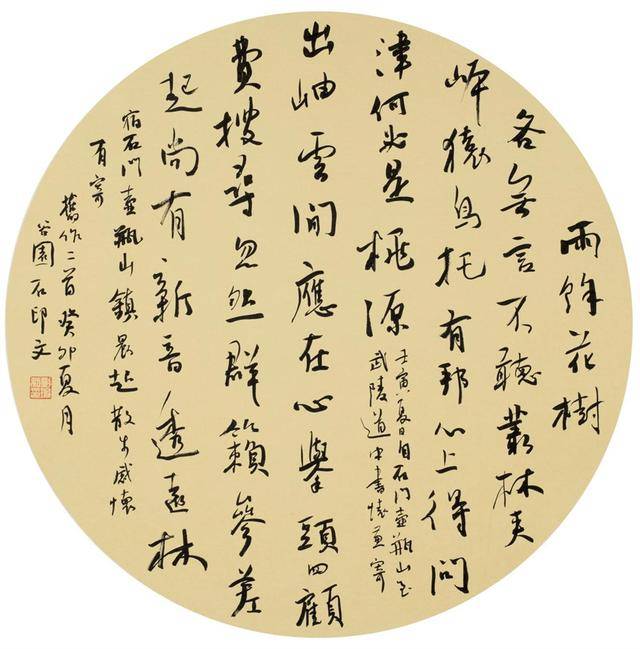 雨餘花樹
各無言不聽叢林夾
岸猿烏托有邦心上得問
津何必是桃源
壬寅夏日自石門壺瓶山至
武陵道中書懷並寄
出岫雲閒應在心舉頭四顧
費搜尋忽然群籟參差
起尚有新音透遠林
宿石門壺瓶山鎮晨起散步感懷
有寄
舊作二首癸卯夏月
谷園石印文